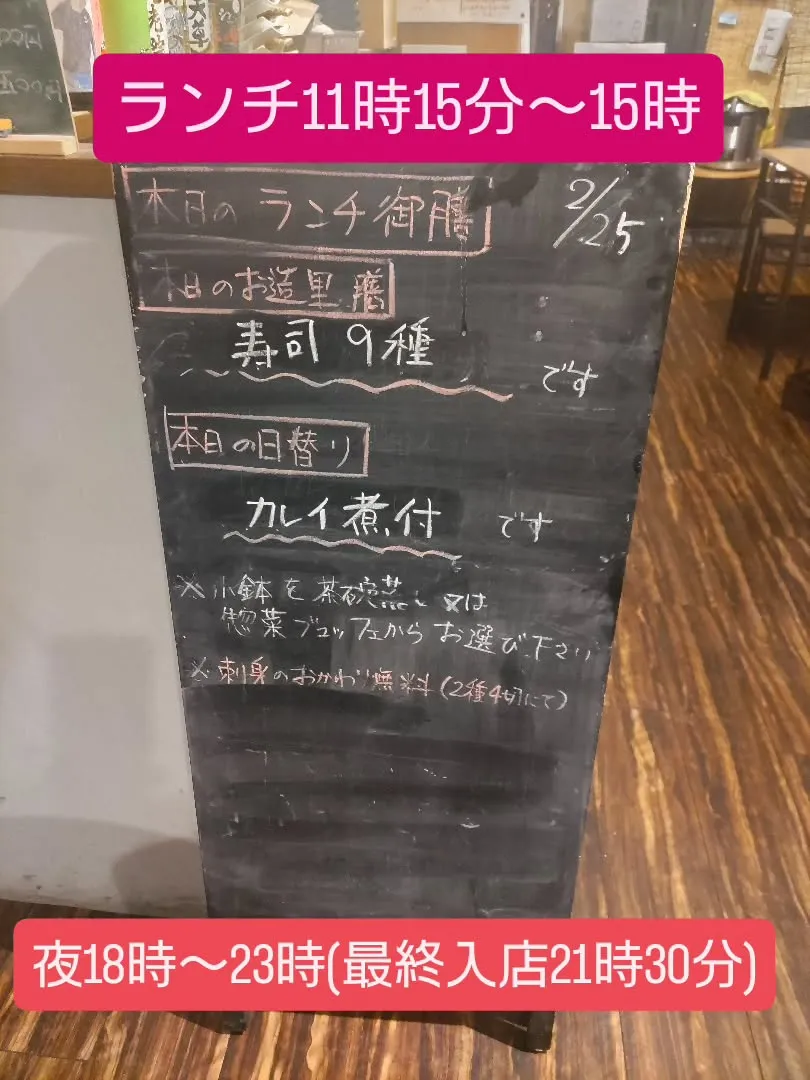 ランチ11時15分～15時
本日のランチ御膳 2/25
本日のお造里膳
寿司9種
です
本日の日替り
カレイ煮付 です
※小鉢を茶碗蒸し又は
惣菜ブュッフェからお選び下さい
※刺身のおかわり無料(2種4切にて)
夜18時～23時(最終入店21時30分)